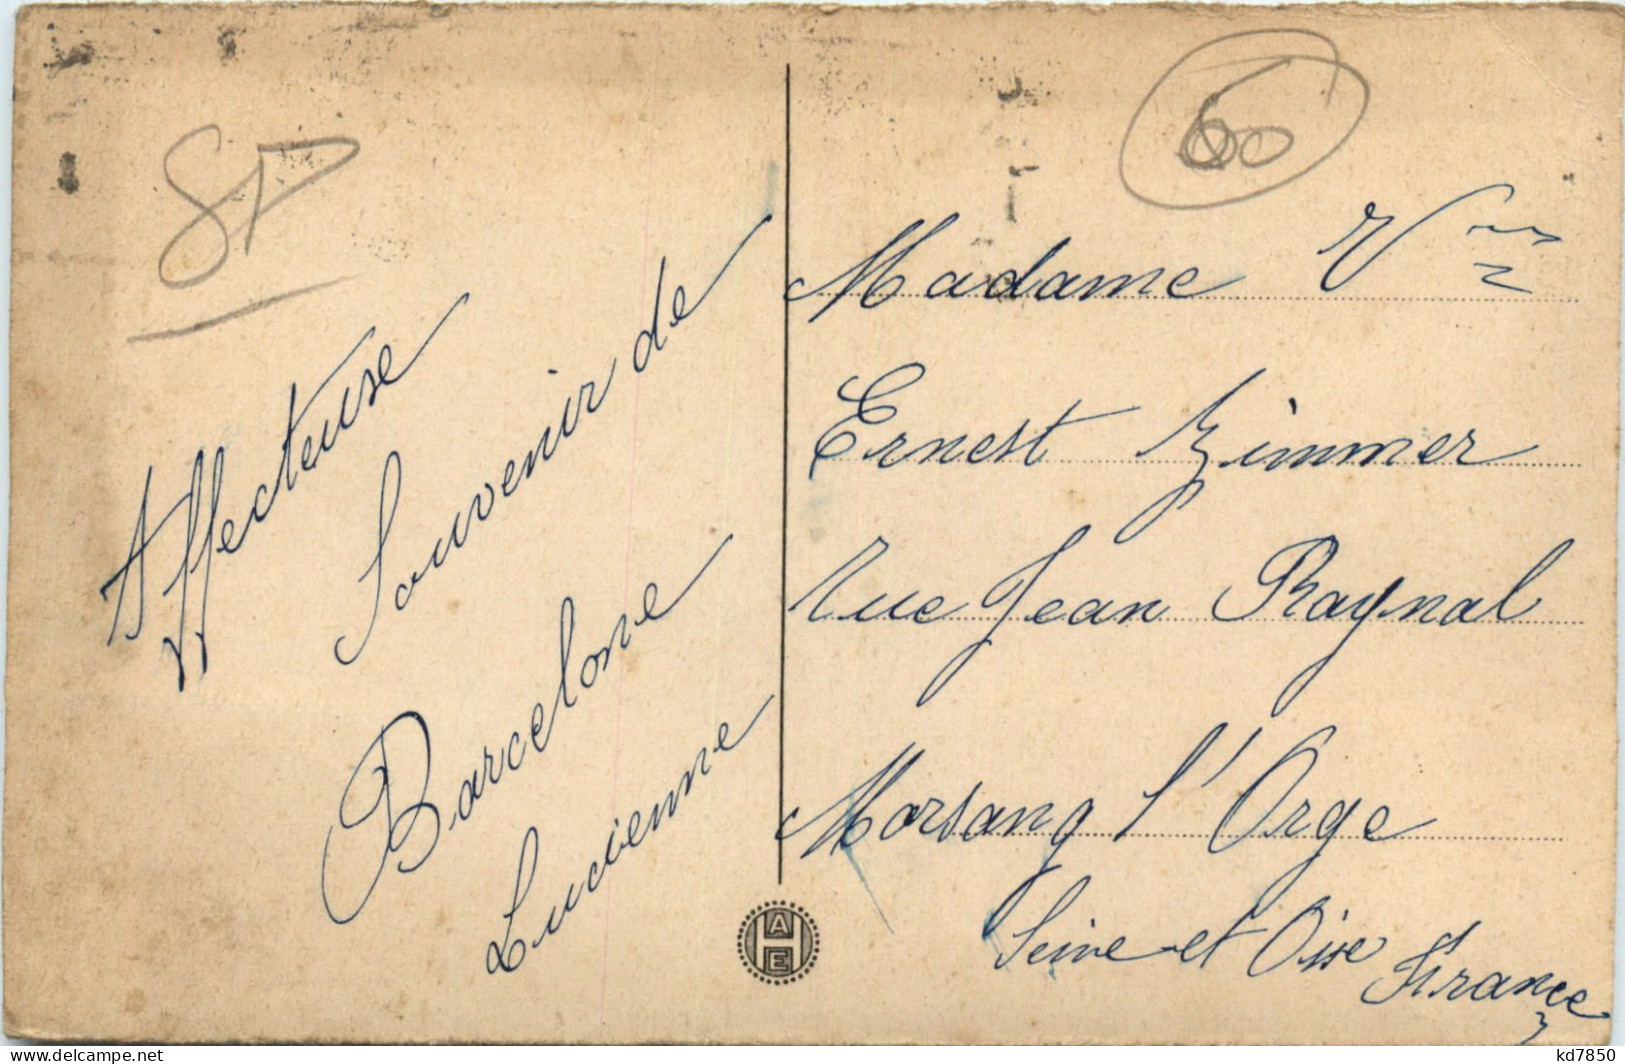 60
Affecteuse
Souvenir de
Barcelone
Lucienne
Madame Vve
Ernest Zimmer
rue Jean Raynal
Morsang l'Orge
Seine et Oise France
A
H
E
kd7850